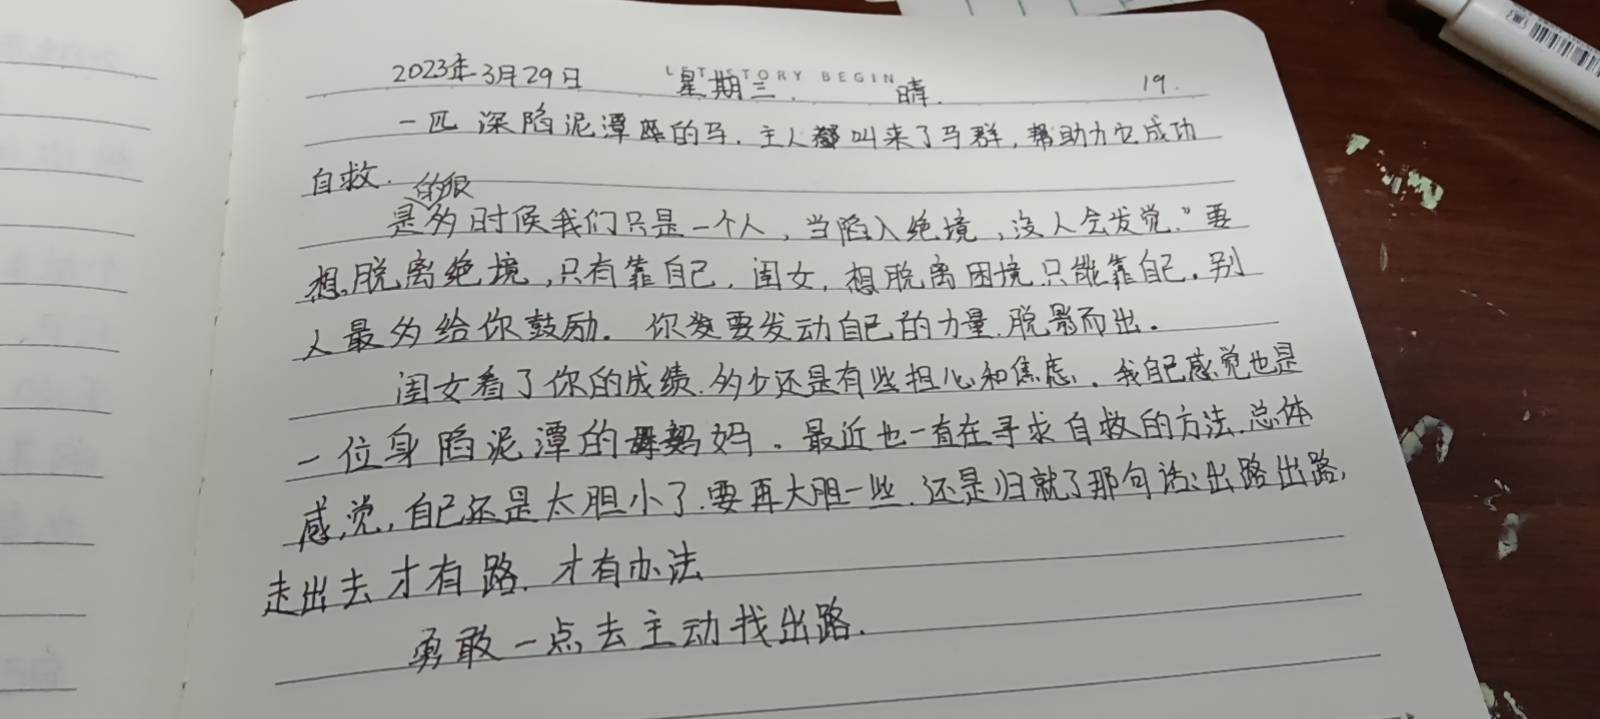 LET STORY BEGIN
2023年3月29日 星期三. 晴. 19.
一匹深陷泥潭的马.主人叫来了马群,帮助力它成功
自救.
是的很多时候我们只是一个人,当陷入绝境,没人会发觉."要
想脱离绝境,只有靠自己.闺女,想脱离困境只能靠自己.别
人最多给你鼓励.你要发动自己的力量.脱影而出.
闺女看了你的成绩.多少还是有些担心和焦虑.我自己感觉也是
一位身陷泥潭的妈妈.最近也一直在寻求自救的方法.总体
感觉,自己还是太胆小了.要再大胆一些.还是归就了那句话:出路出路,
走出去才有路.才有办法
勇敢一点去主动找出路.